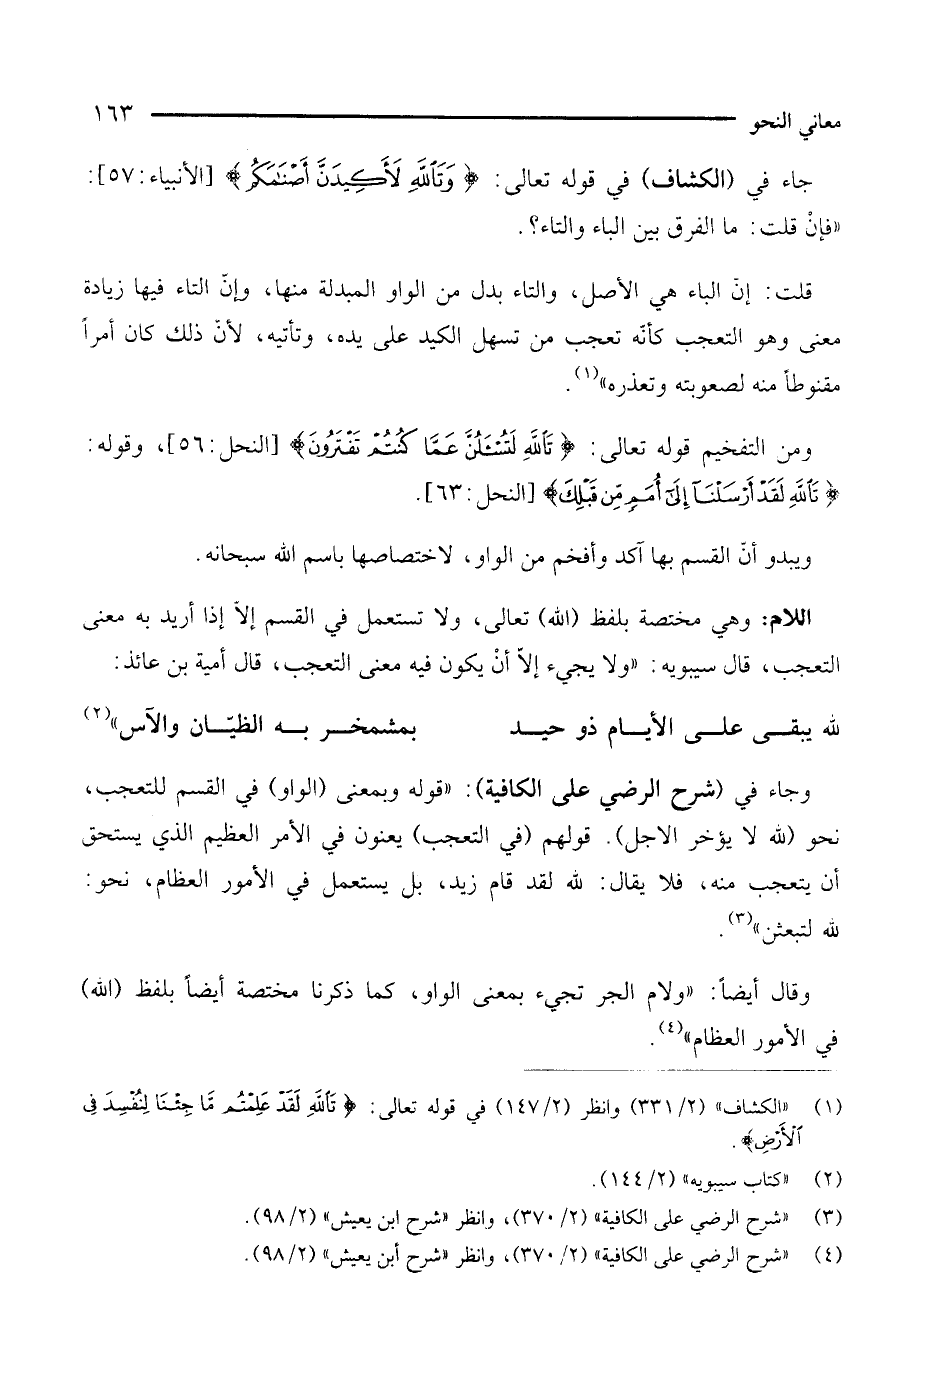 معاني النحو ١٦٣
جاء في (الكشاف) في قوله تعالى: ﴿ وَتَاللَّهِ لَأَكِيدَنَّ أَصْنَٰمَكُم ﴾ [الأنبياء: ٥٧]:
«فإنْ قلت: ما الفرق بين الباء والتاء؟.
قلت: إنّ الباء هي الأصل، والتاء بدل من الواو المبدلة منها، وإنّ التاء فيها زيادة
معنى وهو التعجب كأنّه تعجب من تسهل الكيد على يده، وتأتيه، لأنّ ذلك كان أمراً
مقنوطاً منه لصعوبته وتعذره»(١).
ومن التفخيم قوله تعالى: ﴿ تَاللَّهِ لَتُسْـَٔلُنَّ عَمَّا كُنتُمْ تَفْتَرُونَ ﴾ [النحل: ٥٦]، وقوله:
﴿ تَاللَّهِ لَقَدْ أَرْسَلْنَآ إِلَىٰٓ أُمَمٍ مِّن قَبْلِكَ ﴾ [النحل: ٦٣].
ويبدو أنّ القسم بها آكد وأفخم من الواو، لاختصاصها باسم الله سبحانه.
اللام: وهي مختصة بلفظ (الله) تعالى، ولا تستعمل في القسم إلاّ إذا أريد به معنى
التعجب، قال سيبويه: «ولا يجيء إلاّ أنْ يكون فيه معنى التعجب، قال أمية بن عائذ:
لله يبقـى علـى الأيـام ذو حيـد بمشمخـر بـه الظيّـان والآس»(٢)
وجاء في (شرح الرضي على الكافية): «قوله وبمعنى (الواو) في القسم للتعجب،
نحو (لله لا يؤخر الاجل). قولهم (في التعجب) يعنون في الأمر العظيم الذي يستحق
أن يتعجب منه، فلا يقال: لله لقد قام زيد، بل يستعمل في الأمور العظام، نحو:
لله لتبعثن»(٣).
وقال أيضاً: «ولام الجر تجيء بمعنى الواو، كما ذكرنا مختصة أيضاً بلفظ (الله)
في الأمور العظام»(٤).
(١) «الكشاف» (٢/ ٣٣١) وانظر (٢/ ١٤٧) في قوله تعالى: ﴿ تَاللَّهِ لَقَدْ عَلِمْتُم مَّا جِئْنَا لِنُفْسِدَ فِى
ٱلْأَرْضِ ﴾.
(٢) «كتاب سيبويه» (٢/ ١٤٤).
(٣) «شرح الرضي على الكافية» (٢/ ٣٧٠)، وانظر «شرح ابن يعيش» (٢/ ٩٨).
(٤) «شرح الرضي على الكافية» (٢/ ٣٧٠)، وانظر «شرح أبن يعيش» (٢/ ٩٨).